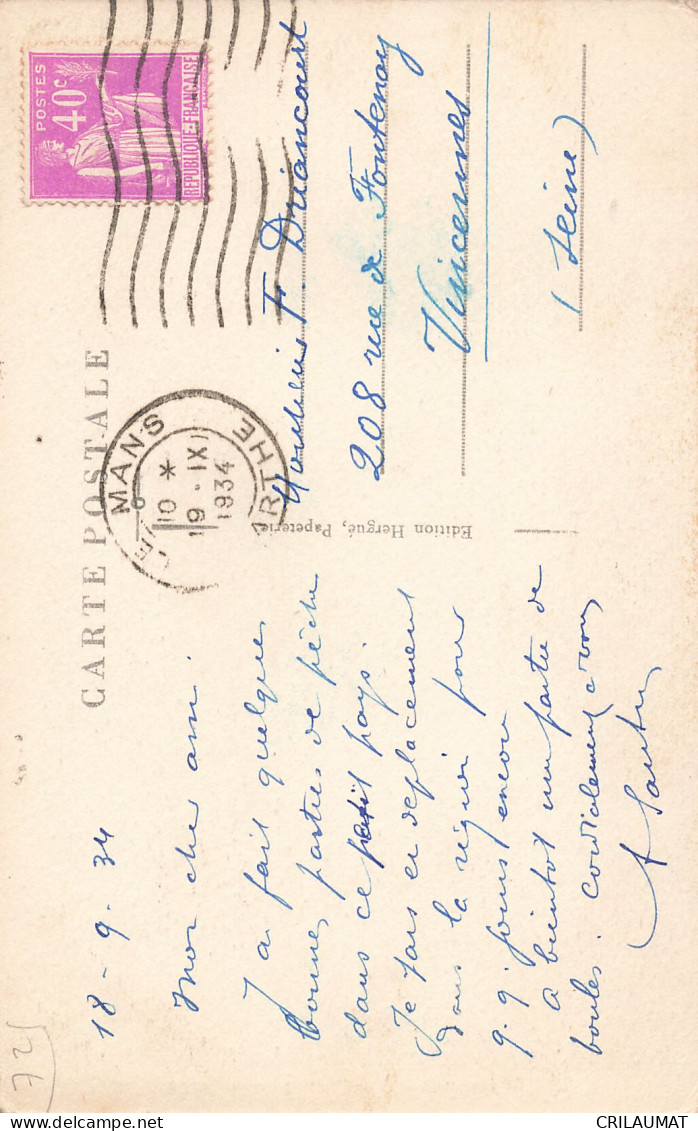 CARTE POSTALE
18-9-34
Mon cher ami.
J'ai fait quelques
bonnes parties de pêche
dans ce petit pays.
Je suis en déplacement
dans la région pour
q.q. jours encore
A bientôt une partie de
boules. Cordialement à vous
Edition Hergué, Papeterie
POSTES
40c
REPUBLIQUE FRANÇAISE
LE MANS
10 *
19 - IX
1934
SARTHE
Monsieur F. Driancourt
208 rue de Fontenay
Vincennes
(Seine)
72
CRILAUMAT